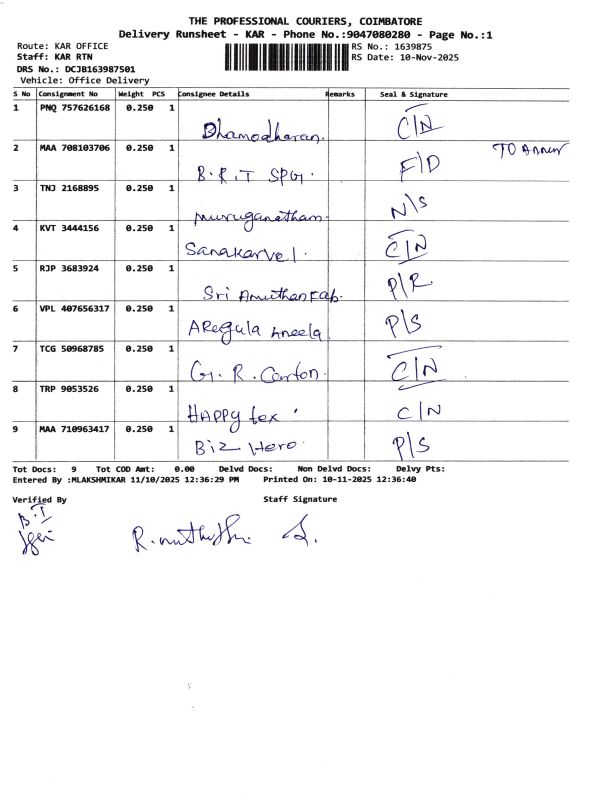 THE PROFESSIONAL COURIERS, COIMBATORE
Delivery Runsheet - KAR - Phone No.:9047080280 - Page No.:1
Route: KAR OFFICE RS No.: 1639875
Staff: KAR RTN RS Date: 10-Nov-2025
DRS No.: DCJB163987501
Vehicle: Office Delivery
S No Consignment No Weight PCS Consignee Details Remarks Seal & Signature
1 PNQ 757626168 0.250 1 Dhamodharan. C/N
2 MAA 708103706 0.250 1 B.R.T SPG. F/D TO Annur
3 TNJ 2168895 0.250 1 muruganatham. N\S
4 KVT 3444156 0.250 1 Sanakarvel. C/N
5 RJP 3683924 0.250 1 Sri Amuthan Fab. P/R.
6 VPL 407656317 0.250 1 ARegula Aneela P/S
7 TCG 50968785 0.250 1 G. R. Carton. C/N
8 TRP 9053526 0.250 1 HAPPY tex C/N
9 MAA 710963417 0.250 1 Biz Hero. P/S
Tot Docs: 9 Tot COD Amt: 0.00 Delvd Docs: Non Delvd Docs: Delvy Pts:
Entered By :MLAKSHMIKAR 11/10/2025 12:36:29 PM Printed On: 10-11-2025 12:36:40
Verified By Staff Signature